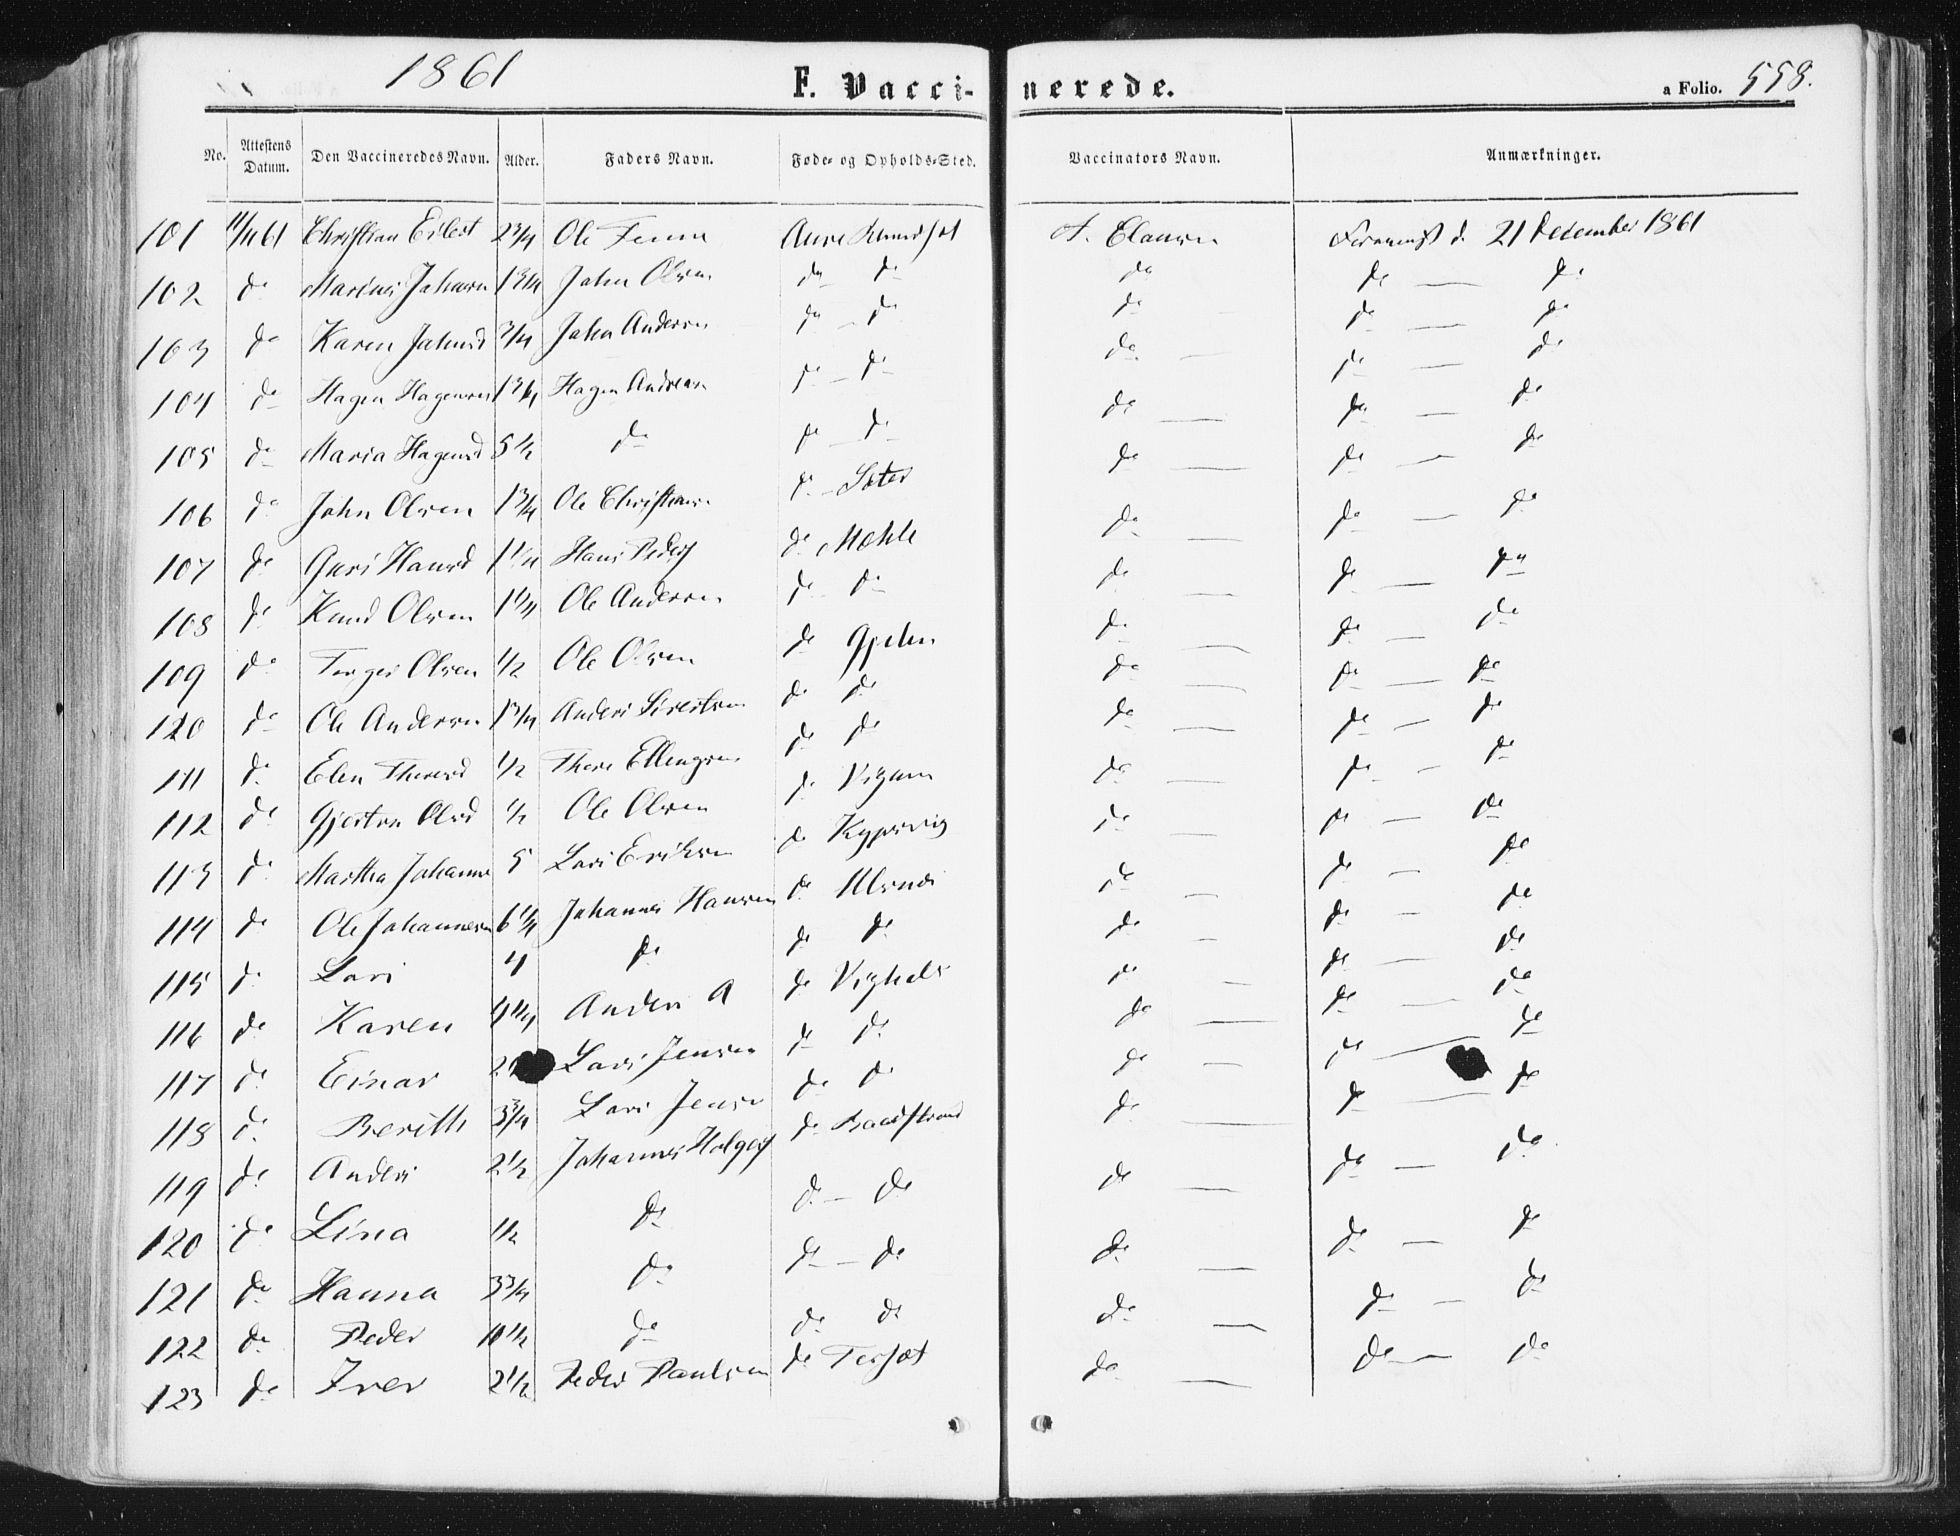 1861 F. Vaccinerede. a Folio. 558.
No. Attestens Datum. Den Vaccineredes Navn. Alder. Faders Navn. Føde- og Opholds-Sted. Vaccinators Navn. Anmærkninger.
101 11/11 61 Christian 2 3/4 Ole Aure 21 December 1861
102 do Marius Johnsen 1 3/4 John Olsen do do do do — do
103 do Karen Johnsd 3/4 John Andersen do - do do do — do
104 do Hagen Hagensen 1 3/4 Hagen Andersen do - do do — do — do
105 do Maria Hagensd 5 1/2 do do - do do — do — do
106 do John Olsen 1 3/4 Ole Christians. do - Sæter do — do — do
107 do Guri Hansd 1 1/4 Hans Peders do Mohle do — do — do
108 do Knud Olsen 1 1/4 Ole Andersen do do do — do — do
109 do Torger Olsen 1/2 Ole Olsen do do — do — do
120 do Ole Andersen 1 3/4 Anders Sivertsen do do do — do — do
111 do Elen 1/2 Thore Ellingsen do do do — do — do
112 do Gjertru Olsd 1/2 Ole Olsen do do — do — do
113 do Martha Johanne 5 Lars Eriksen do Kypsvig do — do — do
114 do Ole Johannesen 6 1/4 Johannes Hansen do do — do — do
115 do Lars 4 do do do do — do — do
116 do Karen 4 1/4 Anders A do do — do — do
117 do Einar Lars Jensen do do do — do — do
118 do Berith 3 3/4 Lars Jens do do do — do — do
119 do Anders 2 1/2 Johannes Holgers do do — do — do
120 do Lina 1/2 do do — do do — do — do
121 do Hanna 3 3/4 do do — do do — do — do
122 do Peder 10 1/2 do do do do — do — do
123 do Iver 2 1/2 Peder Paulsen do do — do — do